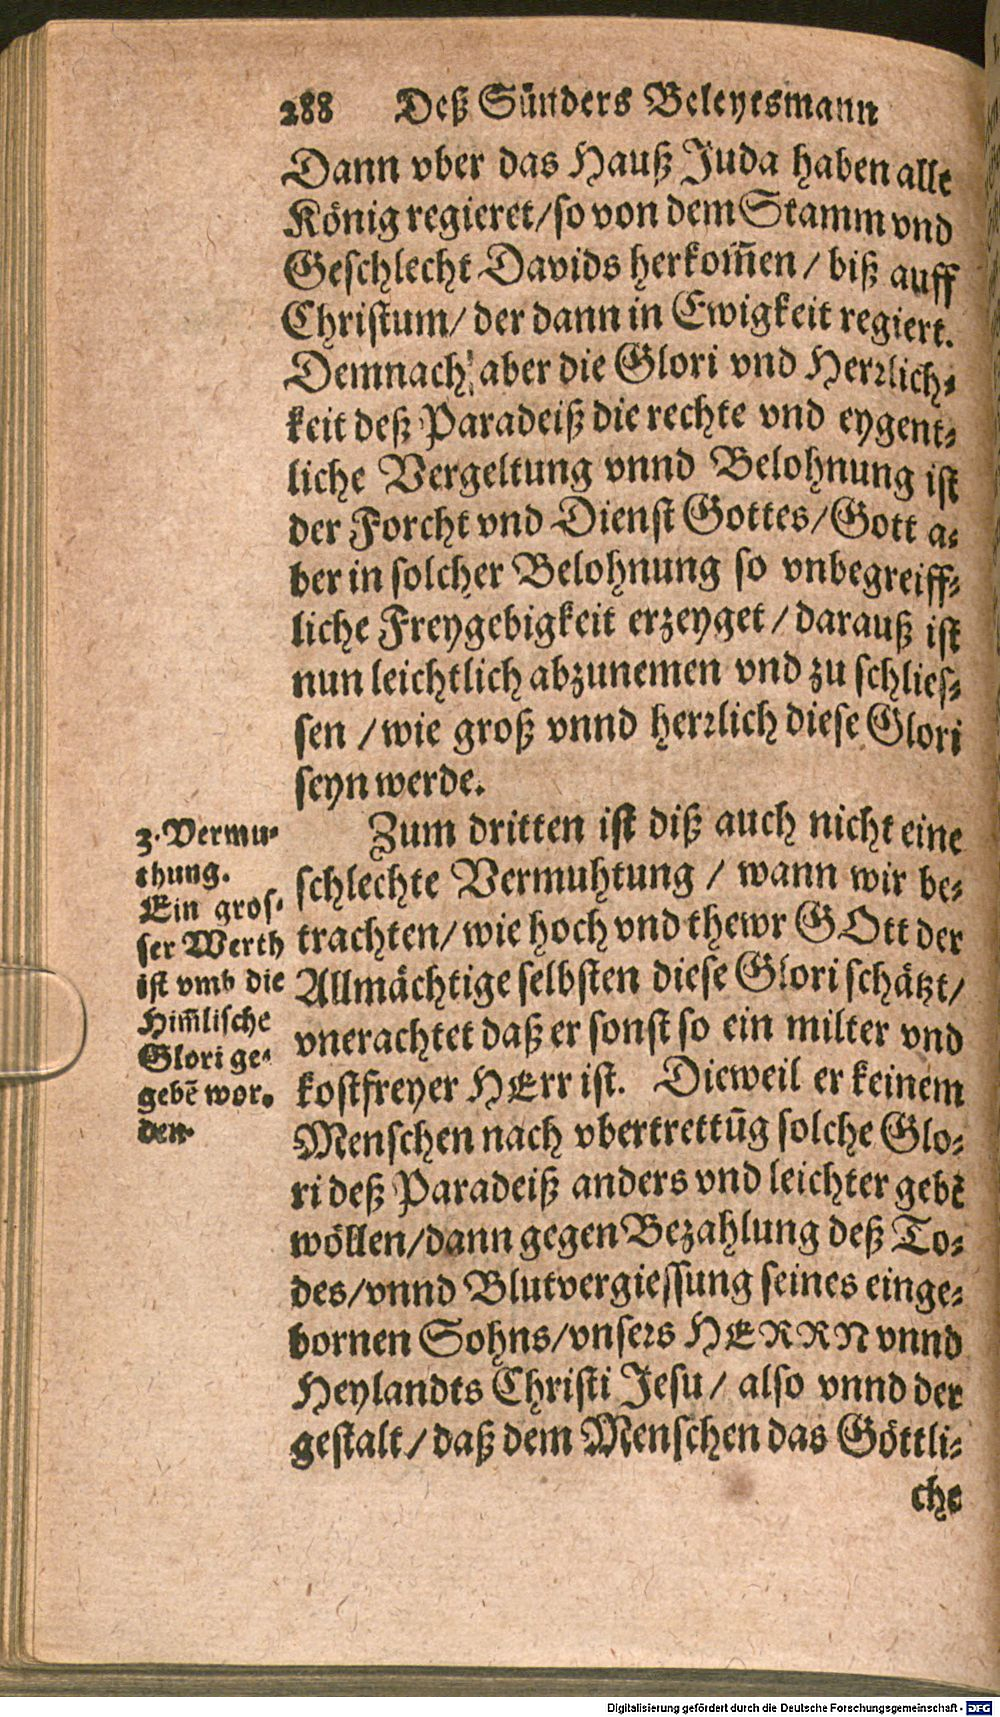 288 Deß Sünders Beleytsmann
Dann vber das Hauß Juda haben alle
König regieret/so von dem Stamm vnd
Geschlecht Davids herkom̃en / biß auff
Christum/ der dann in Ewigkeit regiert.
Demnach aber die Glori vnd Herrlich-
keit deß Paradeiß die rechte vnd eygent-
liche Vergeltung vnnd Belohnung ist
der Forcht vnd Dienst Gottes/Gott a-
ber in solcher Belohnung so vnbegreiff-
liche Freygebigkeit erzeyget / darauß ist
nun leichtlich abzunemen vnd zu schlies-
sen / wie groß vnnd herrlich diese Glori
seyn werde.
Zum dritten ist diß auch nicht eine
schlechte Vermuhtung / wann wir be-
trachten/ wie hoch vnd thewr GOtt der
Allmächtige selbsten diese Glori schätzt/
vnerachtet daß er sonst so ein milter vnd
kostfreyer HErr ist. Dieweil er keinem
Menschen nach vbertrettũg solche Glo-
ri deß Paradeiß anders vnd leichter gebẽ
wöllen/dann gegen Bezahlung deß To-
des/vnnd Blutvergiessung seines einge-
bornen Sohns/vnsers HERRN vnnd
Heylandts Christi Jesu / also vnnd der
gestalt / daß dem Menschen das Göttli-
che
3. Vermu-
thung.
Ein gros-
ser Werth
ist vmb die
Him̃lische
Glori ge-
gebẽ wor-
den.
Digitalisierung gefördert durch die Deutsche Forschungsgemeinschaft - DFG